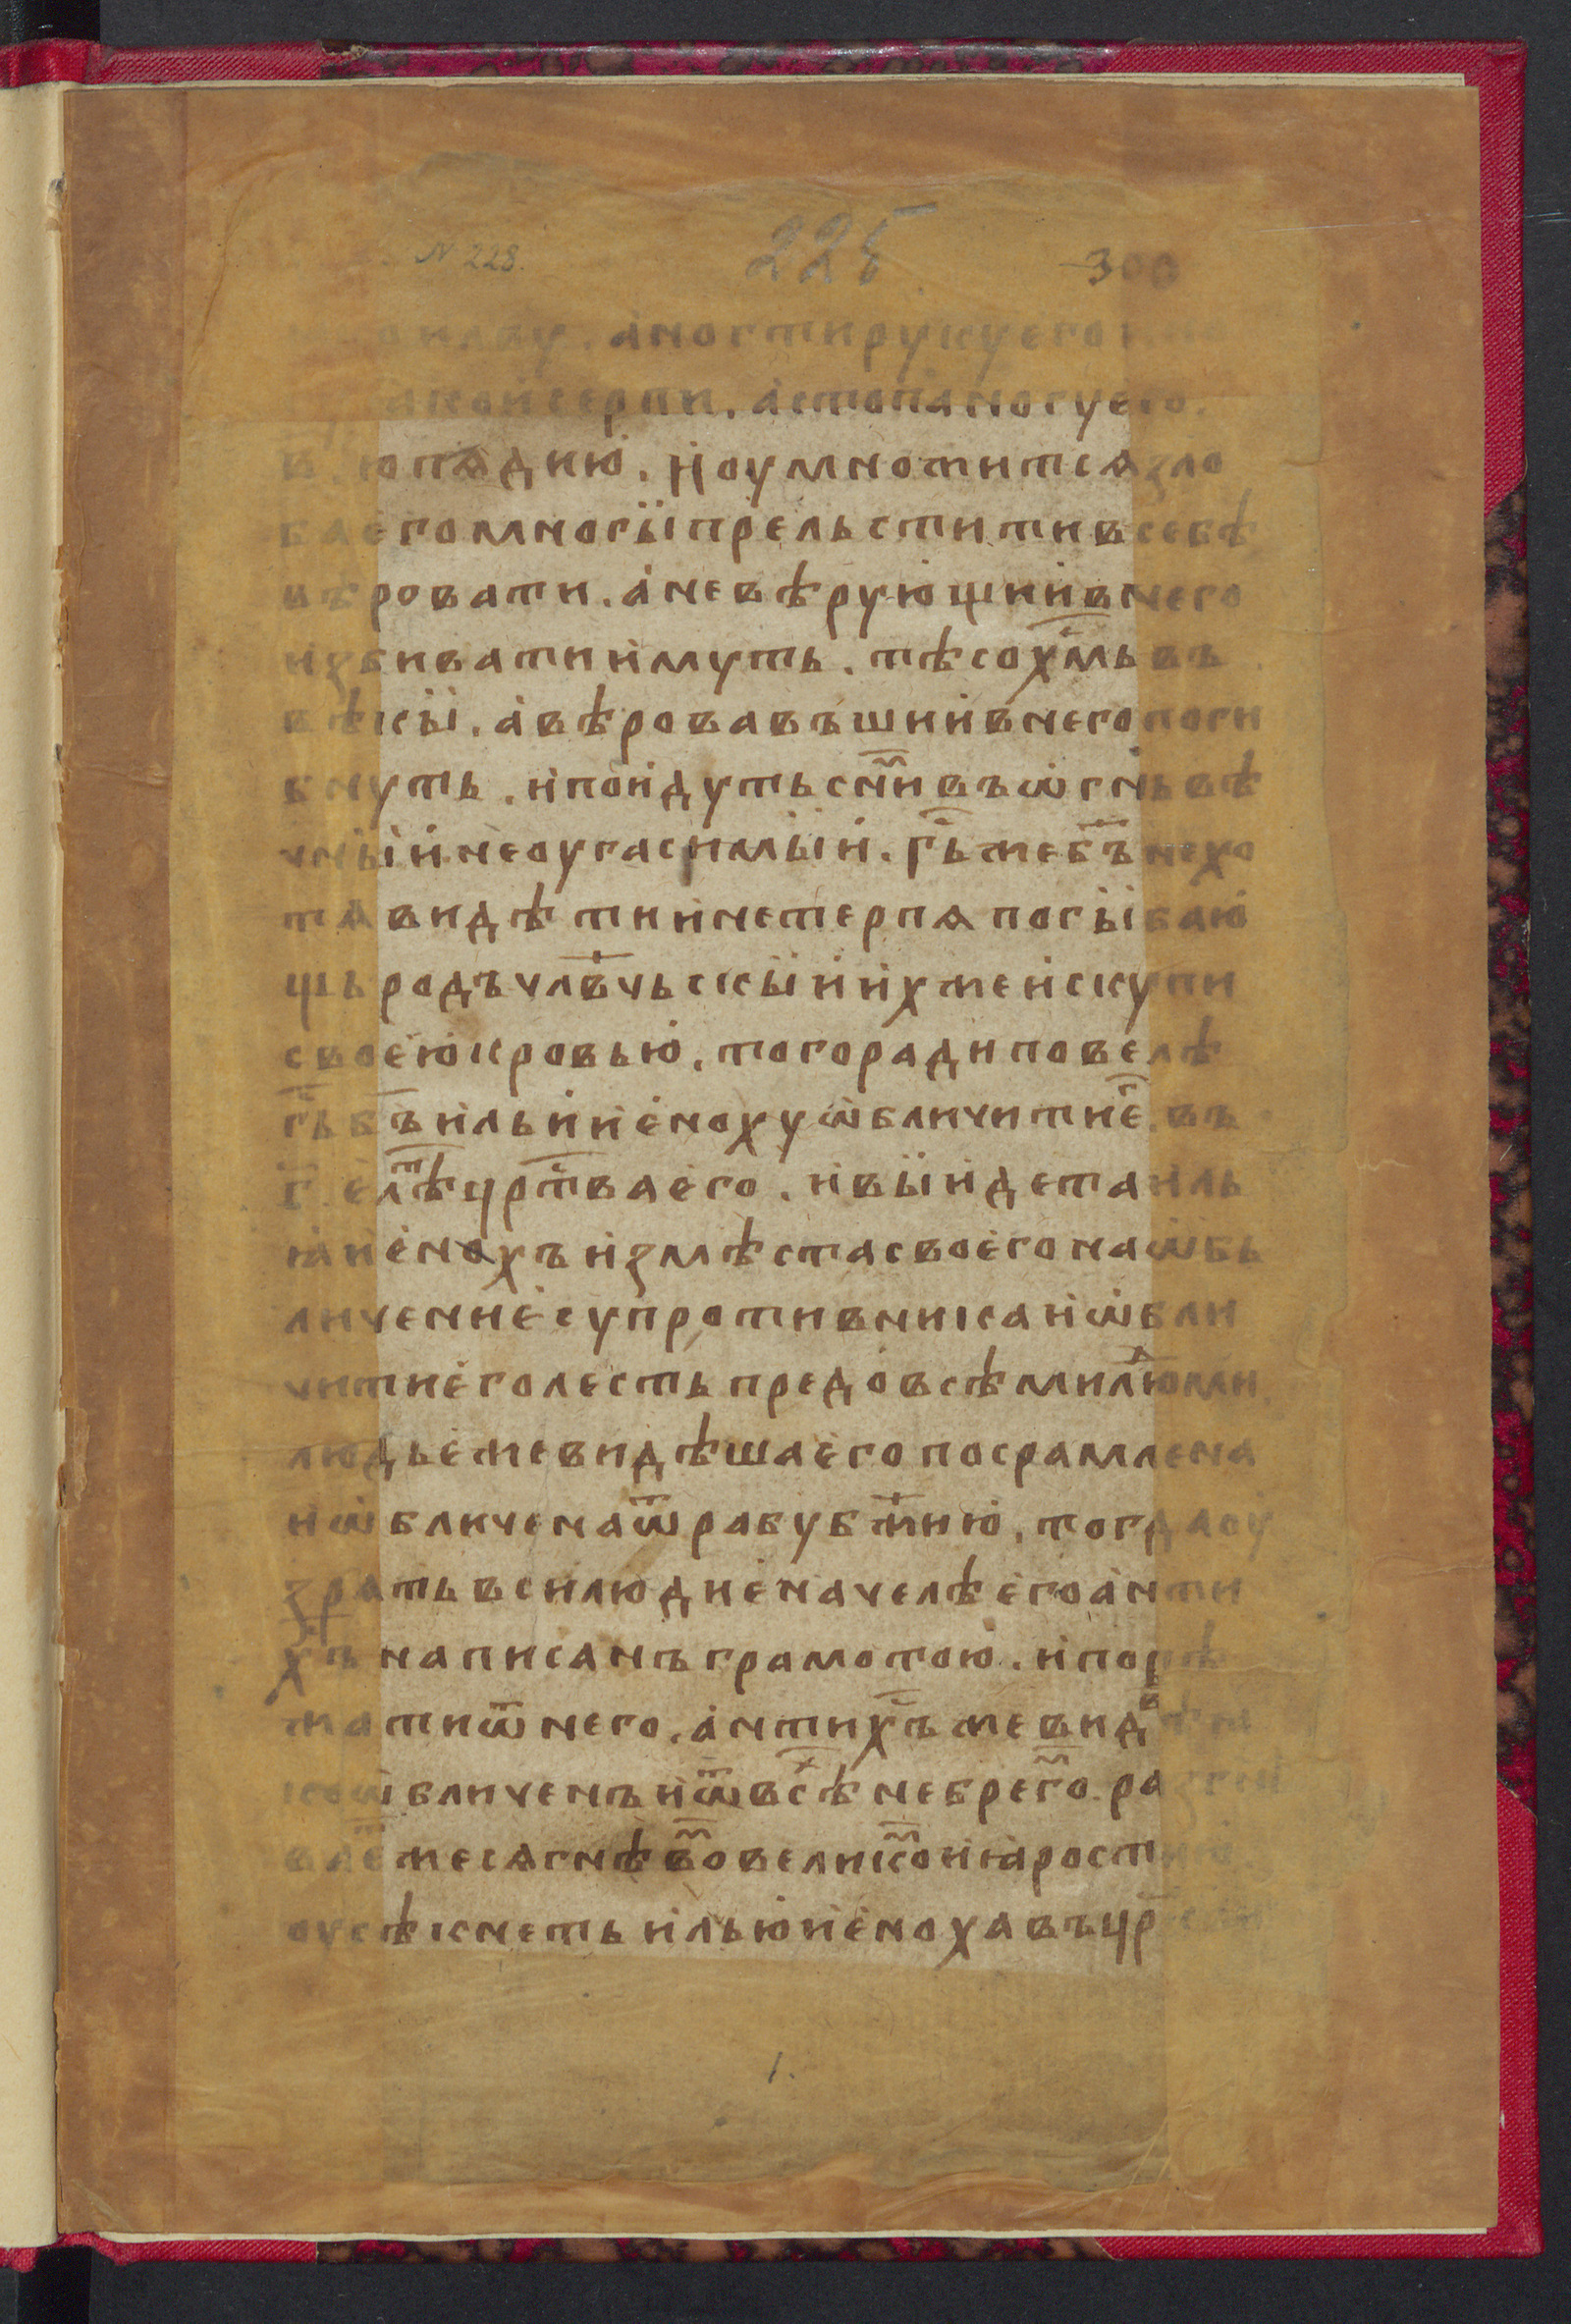 N 228.
225
300
а ногти руку его
серпи. а стопа ногу его.
ю пядию. и оумножитсѧ зло
ба его многїı прельстити в себѣ
вѣровати. а невѣрующии в него
избивати имуть. тѣ со хм҃ь въ
вѣкы. а вѣровавъшии в него поги
бнуть. и поидуть с ни҃м въ ѡгнь вѣ
чныи неоугасимыи. г҃ь же б҃ъ не хо
тѧ видѣти и не терпѧ погыбаю
щь родъ чл҃вчьскыи ихже искупи
своею кровью. того ради повелѣ
г҃ь б҃ъ ильи и еноху ѡбличити е҃г въ
г҃. е лѣ҃т цр҃тва его. и выидета иль
ıа и енохъ из мѣста своего на ѡбь
личение супротивника и ѡбли
чити его лесть предо всѣми лю҃дми
людье же видѣша его посрамлена
и ѡбличена ѿ рабу б҃жию. тогда оу
зрѧть вси людие на челѣ его анти
х҃ъ написанъ грамотою. и
жати ѿ него. антих҃ъ же видѣв
ко ѡбличенъ и ѿ всѣ҃х небрего. раз
вае҃т же сѧ гнѣво҃м велико҃м и ıарост
оусѣкнеть илью и еноха въ цр҃
1.